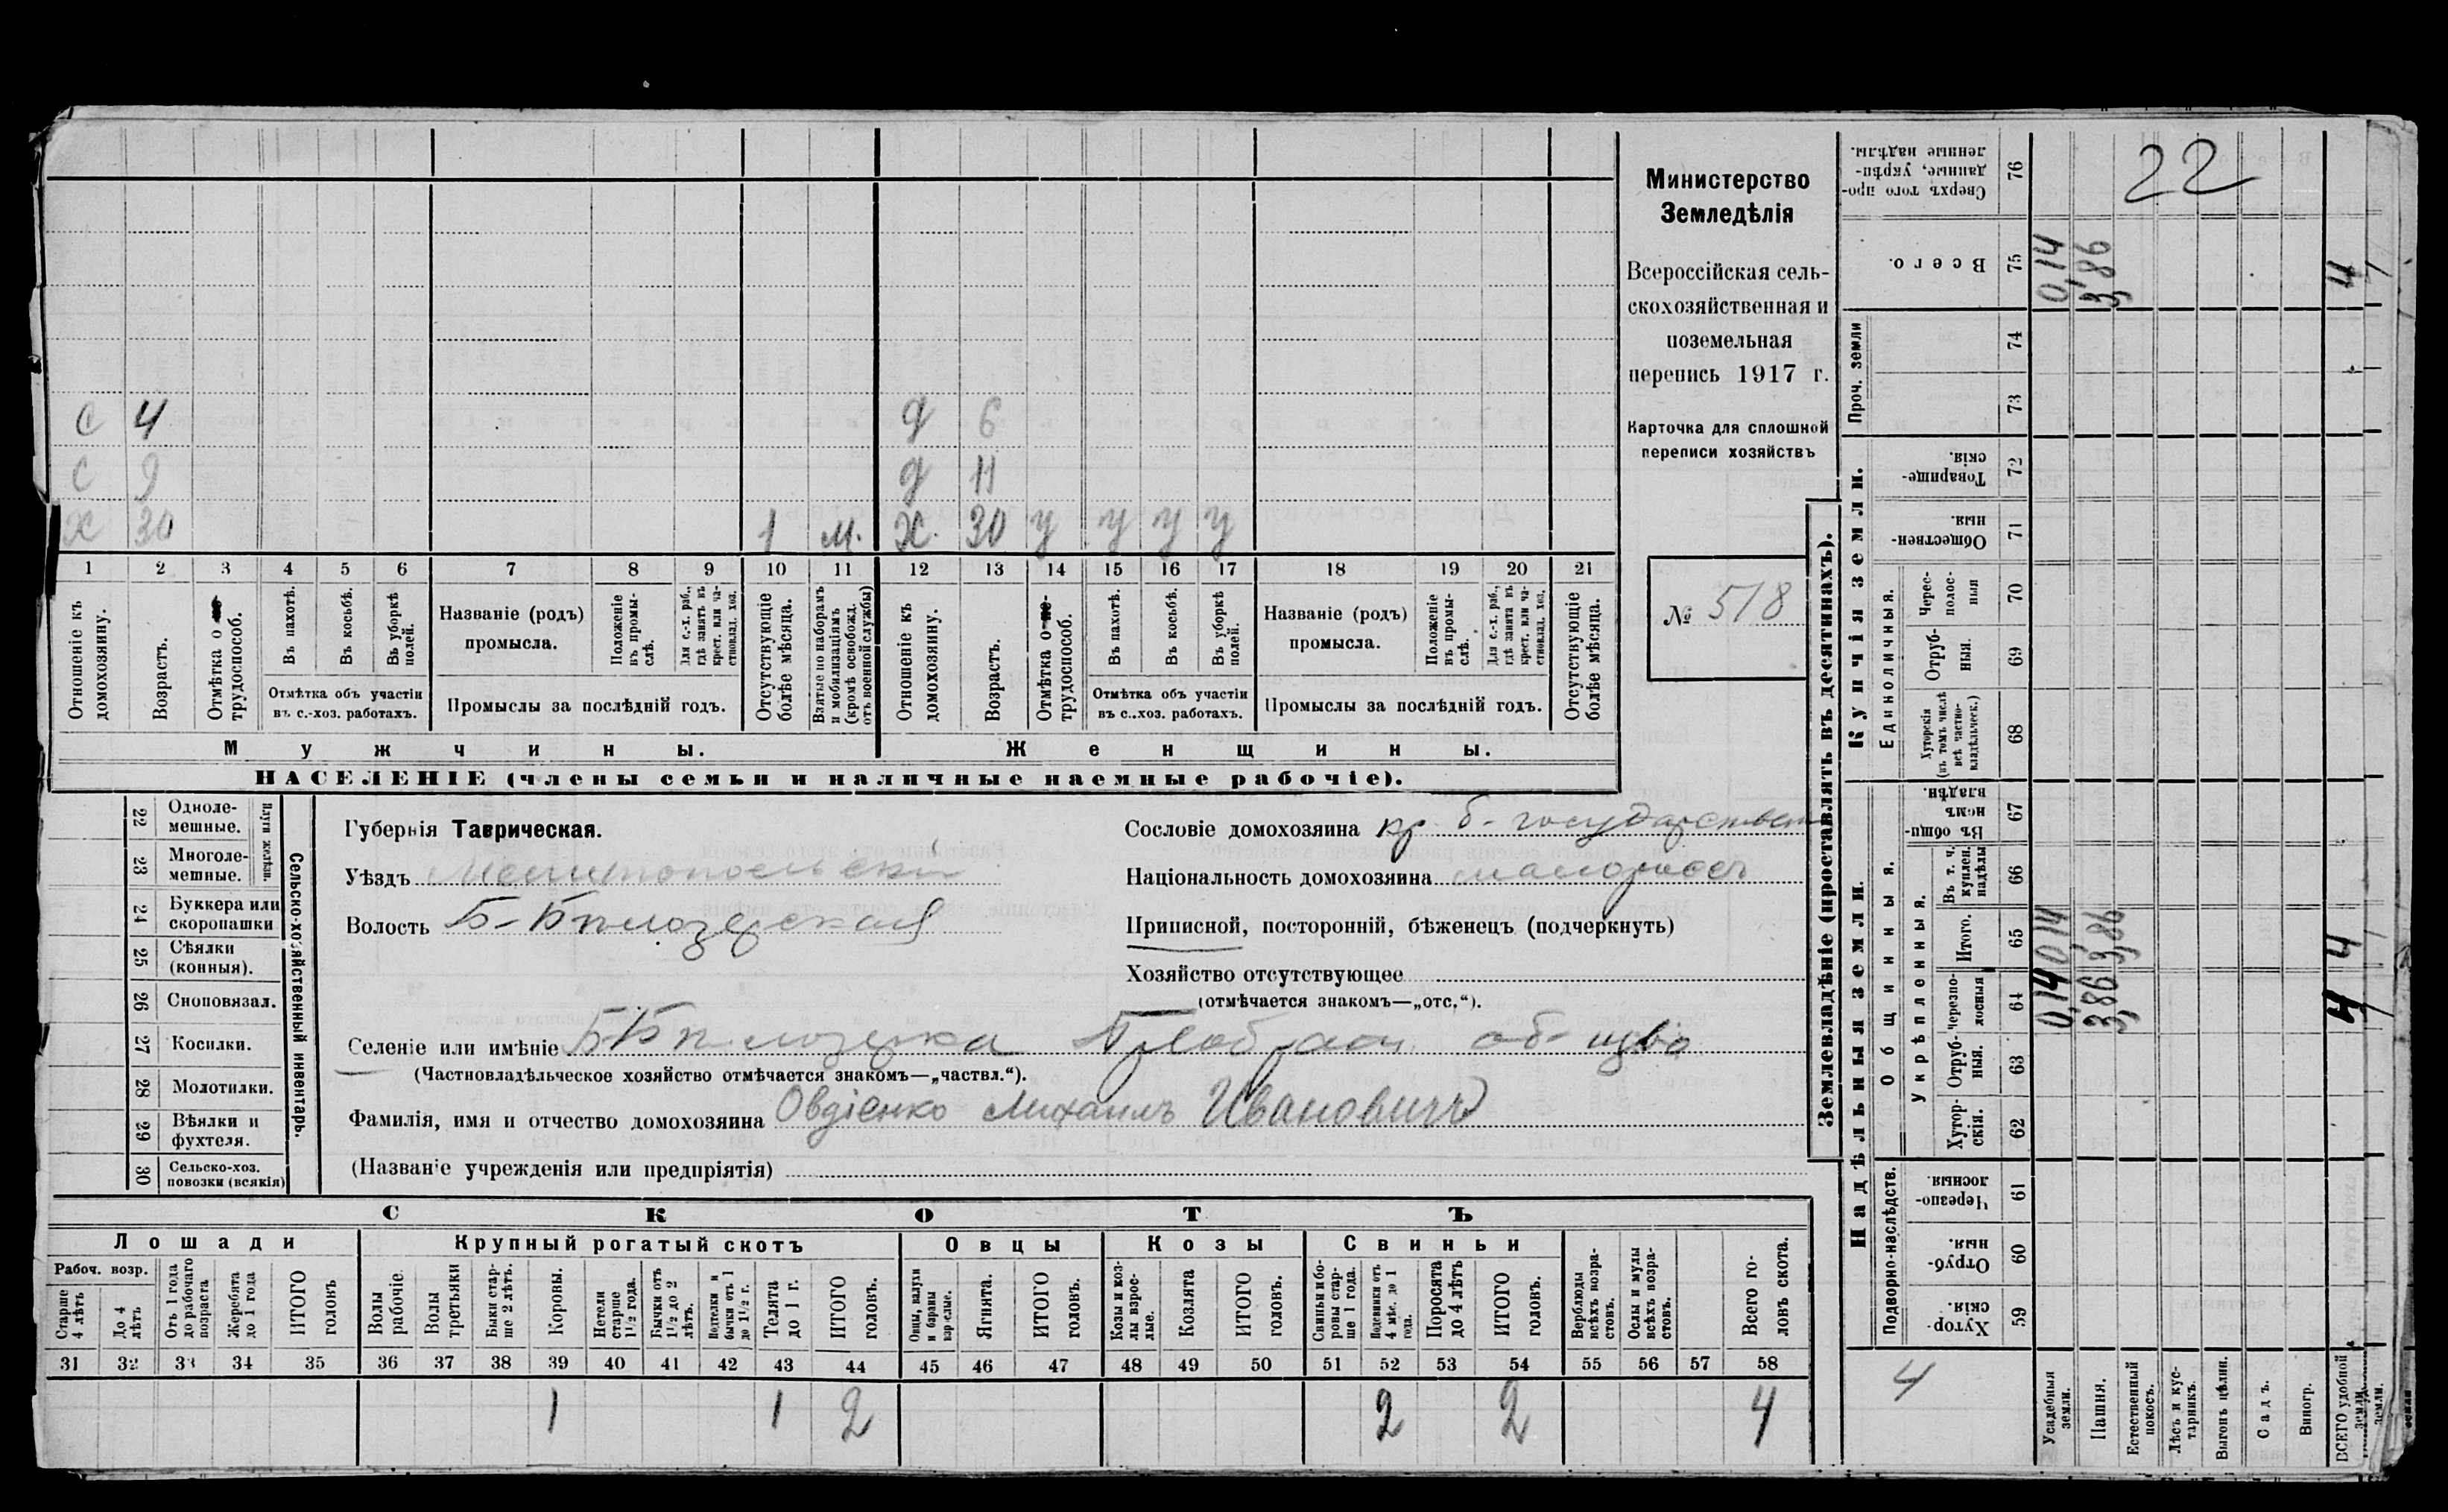 22
Министерство
Земледѣлія
Всероссійская сель-
скохозяйственная и
поземельная
перепись 1917 г.
Карточка для сплошной
переписи хозяйствъ
№ 518
с 4 д 6
с 9 д 11
х 30 1 м. Х. 30 у у у у
1 2 3 4 5 6 7 8 9 10 11 12 13 14 15 16 17 18 19 20 21
Отношеніе къ домохозяину.
Возрастъ.
Отмѣтка о трудоспособ.
Въ пахотѣ.
Въ косьбѣ.
Въ уборкѣ полей.
Отмѣтка объ участіи въ с.-хоз. работахъ.
Названіе (родъ) промысла.
Положеніе въ промы-слѣ.
Для с.-х. раб., гдѣ занятъ въ крест. или ча-стновлад. хоз.
Промыслы за послѣдній годъ.
Отсутствующіе болѣе мѣсяца.
Взятые по наборамъ и мобилизаціямъ (кромѣ освобожд. отъ военной службы)
Отношеніе къ домохозяину.
Возрастъ.
Отмѣтка о трудоспособ.
Въ пахотѣ.
Въ косьбѣ.
Въ уборкѣ полей.
Отмѣтка объ участіи въ с..хоз. работахъ.
Названіе (родъ) промысла.
Положеніе въ промы-слѣ.
Для с.-х. раб., гдѣ занятъ въ крест. или ча-стновлад. хоз.
Промыслы за послѣдній годъ.
Отсутствующіе болѣе мѣсяца.
Мужчины. Женщины.
НАСЕЛЕНІЕ (члены семьи и наличные наемные рабочіе).
Сельско-хозяйственный инвентарь.
Плуги желѣзн.
22 Одноле-мешные.
23 Многоле-мешные.
24 Буккера или скоропашки
25 Сѣялки (конныя).
26 Сноповязал.
27 Косилки.
28 Молотилки.
29 Вѣялки и фухтеля.
30 Сельско-хоз. повозки (всякія)
Губернія Таврическая.
Уѣздъ Мелитопольскій
Волость Б-Бѣлозерская
Сословіе домохозяина кр. б- государствен
Національность домохозяина малороссъ
Приписной, посторонній, бѣженецъ (подчеркнуть)
Хозяйство отсутствующее
(отмѣчается знакомъ—„отс.“).
Селеніе или имѣніе Б-Бѣлозерка об-щво
(Частновладѣльческое хозяйство отмѣчается знакомъ—„частвл.“).
Фамилія, имя и отчество домохозяина Овдіенко Михаилъ Ивановичъ
(Названіе учрежденія или предпріятія)
СКОТЪ
Лошади Крупный рогатый скотъ Овцы Козы Свиньи
Рабоч. возр.
Старше 4 лѣтъ
До 4 лѣтъ
Отъ 1 года до рабочаго возраста
Жеребята до 1 года
ИТОГО головъ
Волы рабочіе
Волы третьяки
Быки стар-ше 2 лѣтъ.
Коровы.
Нетели старше 1½ года.
Бычки отъ 1½ до 2 лѣтъ.
Подтелки и бычки отъ 1 до 1½ г.
Телята до 1 г.
ИТОГО головъ.
Овцы, валухи и бараны взрослые.
Ягнята.
ИТОГО головъ.
Козы и коз-лы взрос-лые.
Козлята
ИТОГО головъ.
Свиньи и бо-ровы стар-ше 1 года.
Подсвинки отъ 4 мѣс. до 1 года.
Поросята до 4 лѣтъ
ИТОГО головъ.
Верблюды всѣхъ возра-стовъ.
Ослы и мулы всѣхъ возра-стовъ.
Всего го-ловъ скота.
31 32 33 34 35 36 37 38 39 40 41 42 43 44 45 46 47 48 49 50 51 52 53 54 55 56 57 58
1 1 2 2 2 4
Землевладѣніе (проставлять въ десятинахъ).
Купчія земли.
Надѣльныя земли.
Сверхъ того про-данные, укрѣп-ленные надѣлы. 76
Всего. 75 0,14 3,86 4
Проч. земли
74
73
Товарище-скія. 72
Обществен-ныя. 71
Единоличныя.
Черес-полос-ныя 70
Отруб-ныя. 69
Хуторскія (въ томъ числѣ всѣ частно-владѣльческ.) 68
Общинныя.
Въ общи-номъ владѣн. 67
Укрѣпленныя.
Въ т. ч. куплен. надѣлы 66
Итого. 65 0,14 3,86 4
Черезпо-лосныя 64 0,14 3,86 4
Отруб-ныя. 63
Хутор-скія. 62
Подворно-наслѣдств.
Черезпо-лосныя. 61
Отруб-ныя. 60
Хутор-скія. 59
4
Усадебныя земли.
Пашня.
Естественный покосъ.
Лѣсъ и кус-тарникъ.
Выгонъ цѣлин.
Садъ.
Виногр.
ВСЕГО удобной земли.